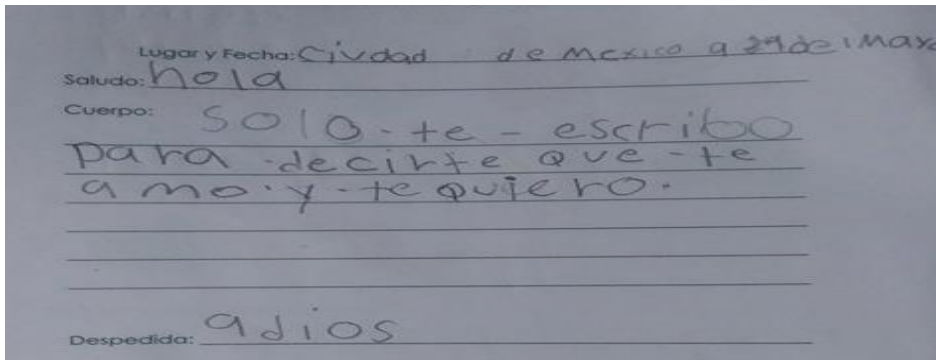 Lugar y Fecha: Civdad de Mexico a 29 de Mayo
Saludo: hola
Cuerpo: solo-te-escribo
para-decirte que-te
amo.y-te quiero.
Despedida: adios